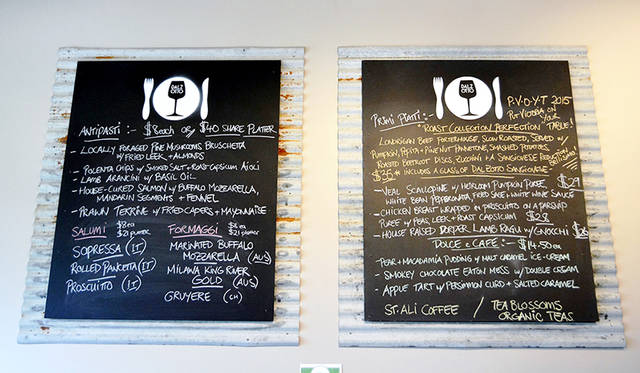 DAL ZOTTO
ANTIPASTI :- $8 each or $40 SHARE PLATTER
- LOCALLY FORAGED PINE MUSHROOMS BRUSCHETTA
W/ FRIED LEEK + ALMONDS
- POLENTA CHIPS W/ SMOKED SALT + ROAST CAPSICUM AIOLI
- LAMB ARANCINI W/ BASIL OIL
- HOUSE-CURED SALMON W/ BUFFALO MOZZARELLA,
MANDARIN SEGMENTS + FENNEL
- PRAWN TERRINE W/ FRIED CAPERS + MAYONNAISE
SALUMI $8 ea
$21 platter
SOPRESSA (IT)
ROLLED PANCETTA (IT)
PROSCIUTTO (IT)
FORMAGGI $8 ea
$21 platter
MARINATED BUFFALO
MOZZARELLA (AUS)
MILAWA KING RIVER
GOLD (AUS)
GRUYERE (CH)
DAL ZOTTO
PRIMI PIATTI :-
P.V.O.Y.T 2015
"ROAST COLLECTION PERFECTION"
PUMPKIN, PEPITA + PINENUT PANNETONE, SMASHED POTATOES,
$35 INCLUDES A GLASS OF DAL ZOTTO SANGIOVESE
- VEAL SCALOPINE W/ HEIRLOOM PUMPKIN PUREE, $29
WHITE BEAN PEPPERONATA, FRIED SAGE + WHITE WINE SAUCE
- CHICKEN BREAST WRAPPED IN PROSCUITTO ON A PARSNIP
PUREE W/ PEAS, LEEK + ROAST CAPSICUM $28
- HOUSE RAISED DORPER LAMB RAGU W/ GNOCCHI $26
DOLCE e CAFE :- $14.50 ea
- PEAR + MACADAMIA PUDDING W/ MALT CARAMEL ICE-CREAM
- SMOKEY CHOCOLATE EATON MESS W/ DOUBLE CREAM
- APPLE TART W/ PERSIMMON CURD + SALTED CARAMEL
ST. ALI COFFEE / TEA BLOSSOMS
ORGANIC TEAS